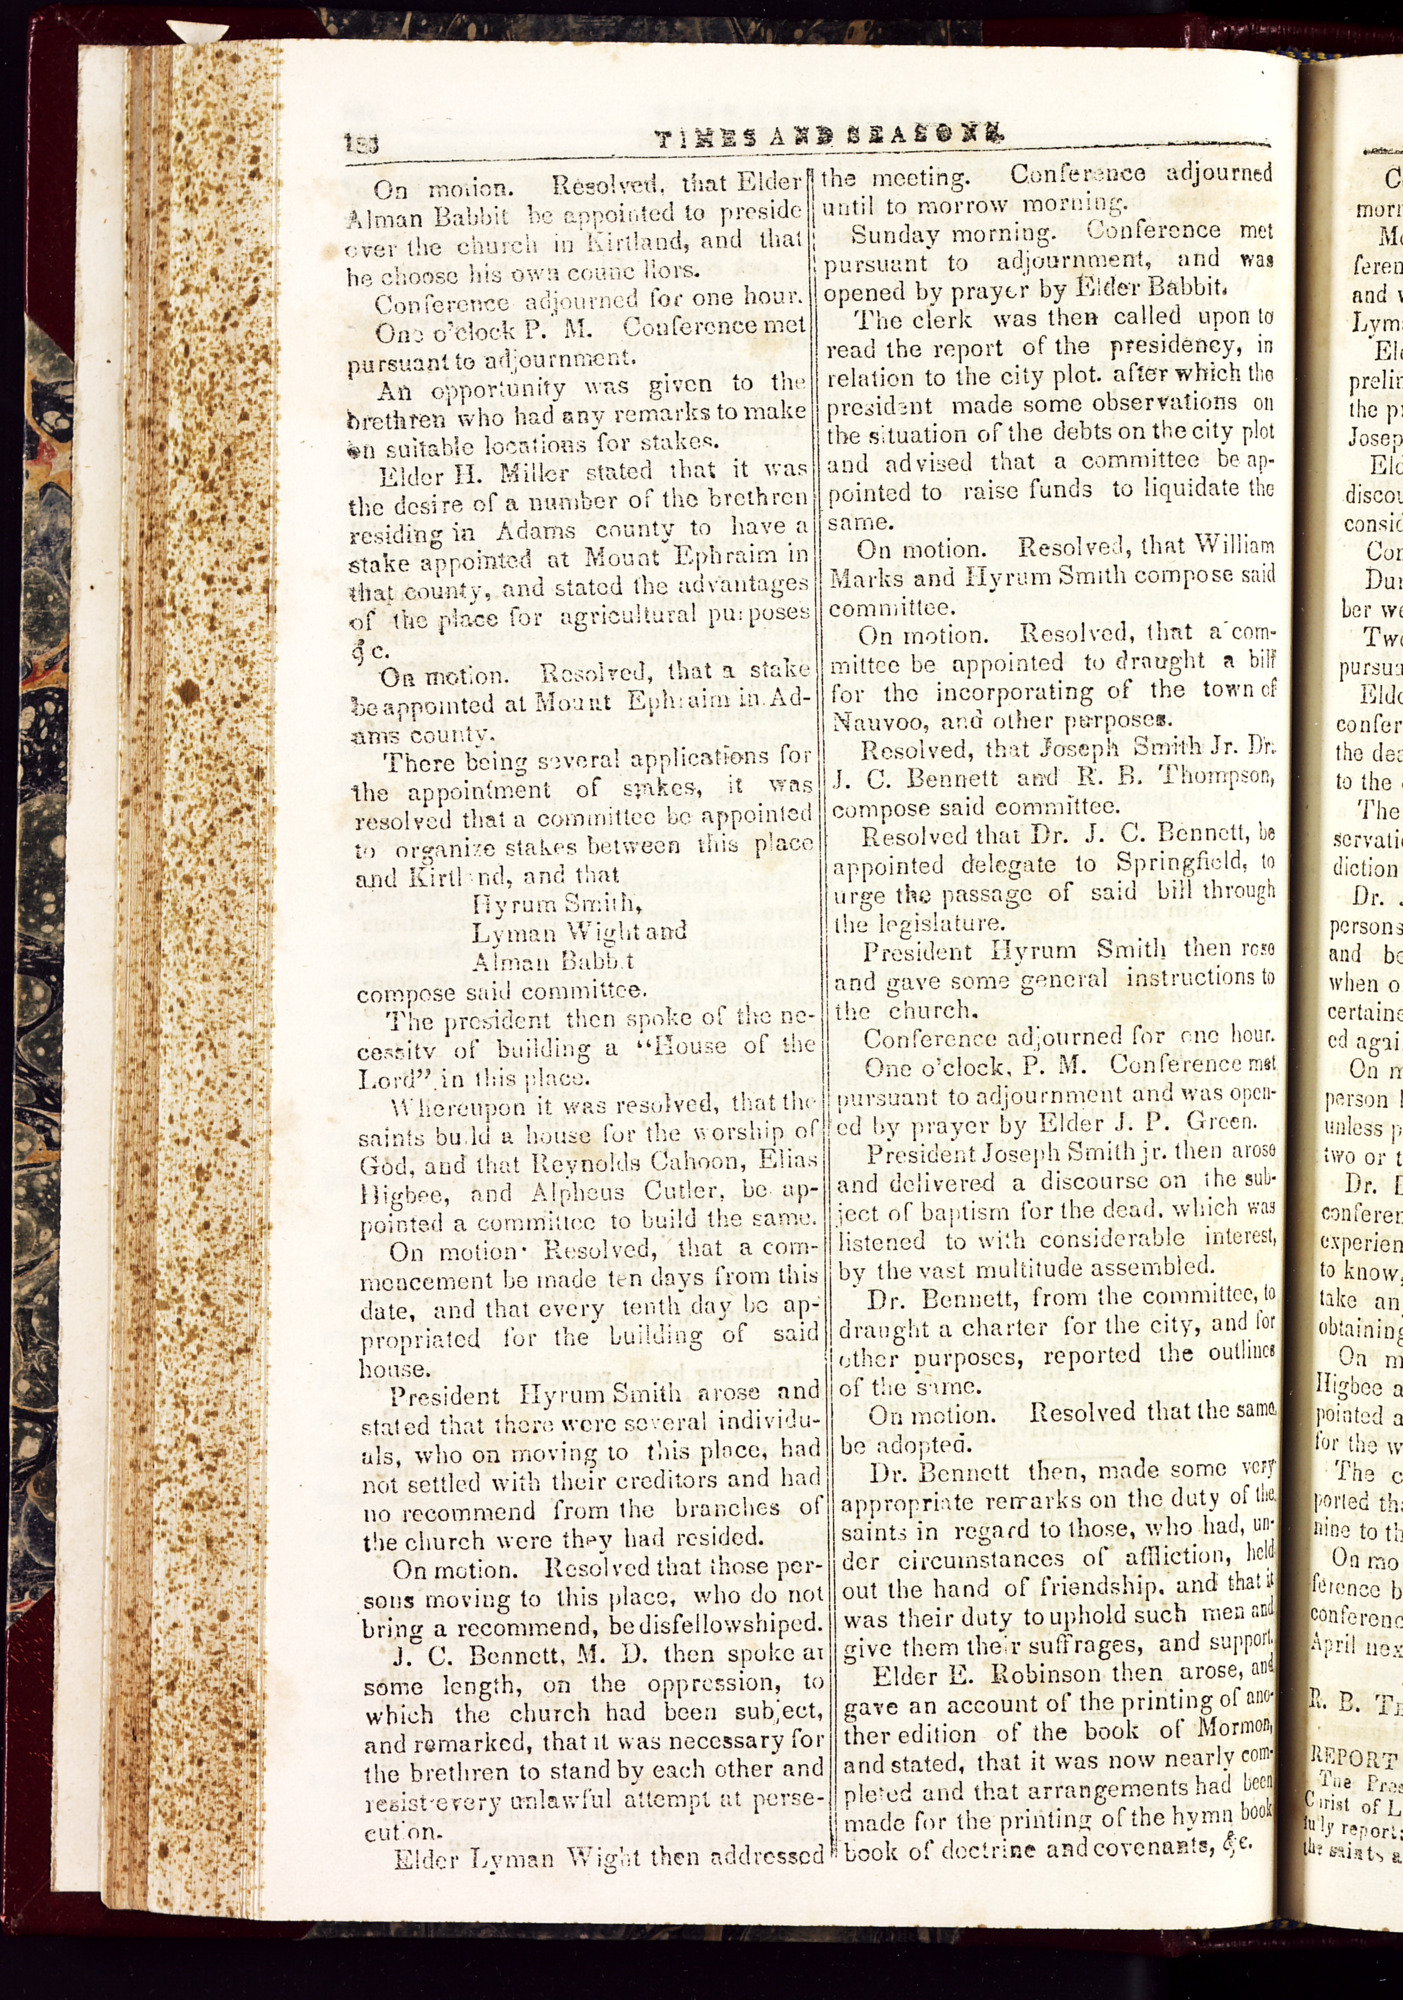 TIMES AND SEASONS.
On motion. Resolved, that Elder
Alman Babbit be appointed to preside
over the church in Kirtland, and that
he choose his own counc llors.
Conference adjourned for one hour.
One o'clock P. M. Conference met
pursuant to adjournment.
An opportunity was given to the
brethren who had any remarks to make
on suitable locations for stakes.
Elder H. Miller stated that it was
the desire of a number of the brethren
residing in Adams county to have a
stake appointed at Mount Ephraim in
that county, and stated the advantages
of the place for agricultural purposes
&c.
On motion. Resolved, that a stake
be appointed at Mount Ephraim in Ad-
ams county.
There being several applications for
the appointment of stakes, it was
resolved that a committee be appointed
to organize stakes between this place
and Kirtland, and that
Hyrum Smith,
Lyman Wight and
Alman Babbit
compose said committee.
The president then spoke of the ne-
cessity of building a "House of the
Lord" in this place.
Whereupon it was resolved, that the
saints build a house for the worship of
God, and that Reynolds Cahoon, Elias
Higbee, and Alpheus Cutler, be ap-
pointed a committee to build the same.
On motion· Resolved, that a com-
mencement be made ten days from this
date, and that every tenth day be ap-
propriated for the building of said
house.
President Hyrum Smith arose and
stated that there were several individu-
als, who on moving to this place, had
not settled with their creditors and had
no recommend from the branches of
the church were they had resided.
On motion. Resolved that those per-
sons moving to this place, who do not
bring a recommend, be disfellowshiped.
J. C. Bennett, M. D. then spoke at
some length, on the oppression, to
which the church had been subject,
and remarked, that it was necessary for
the brethren to stand by each other and
resist every unlawful attempt at perse-
cution.
Elder Lyman Wight then addressed
the meeting. Conference adjourned
until to morrow morning.
Sunday morning. Conference met
pursuant to adjournment, and was
opened by prayer by Elder Babbit.
The clerk was then called upon to
read the report of the presidency, in
relation to the city plot. after which the
president made some observations on
the situation of the debts on the city plot
and advised that a committee be ap-
pointed to raise funds to liquidate the
same.
On motion. Resolved, that William
Marks and Hyrum Smith compose said
committee.
On motion. Resolved, that a com-
mittee be appointed to draught a bill
for the incorporating of the town of
Nauvoo, and other purposes.
Resolved, that Joseph Smith Jr. Dr.
J. C. Bennett and R. B. Thompson,
compose said committee.
Resolved that Dr. J. C. Bennett, be
appointed delegate to Springfield, to
urge the passage of said bill through
the legislature.
President Hyrum Smith then rose
and gave some general instructions to
the church.
Conference adjourned for one hour.
One o'clock, P. M. Conference met
pursuant to adjournment and was open-
ed by prayer by Elder J. P. Green.
President Joseph Smith jr. then arose
and delivered a discourse on the sub-
ject of baptism for the dead, which was
listened to with considerable interest,
by the vast multitude assembled.
Dr. Bennett, from the committee, to
draught a charter for the city, and for
other purposes, reported the outlines
of the same.
On motion. Resolved that the same,
be adopted.
Dr. Bennett then, made some very
appropriate remarks on the duty of the
saints in regard to those, who had, un-
der circumstances of affliction, held
out the hand of friendship, and that it
was their duty to uphold such men and
give them their suffrages, and support.
Elder E. Robinson then arose, and
gave an account of the printing of ano-
ther edition of the book of Mormon,
and stated, that it was now nearly com-
pleted and that arrangements had been
made for the printing of the hymn book
book of doctrine and covenants, &c.